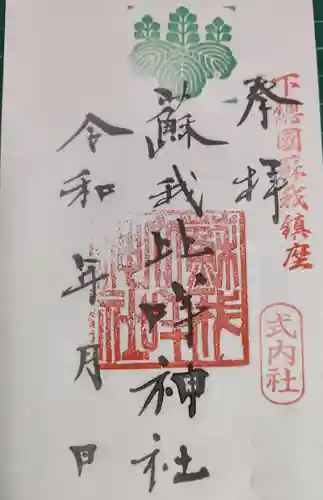 下總國蘇我鎮座
奉拝
式内社
蘇我比咩神社
令和 年 月 日